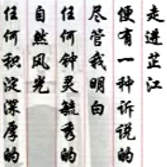 走进芷江
便有一种诉说的
尽管我明白
任何钟灵毓秀的
自然风光
任何积淀深厚的